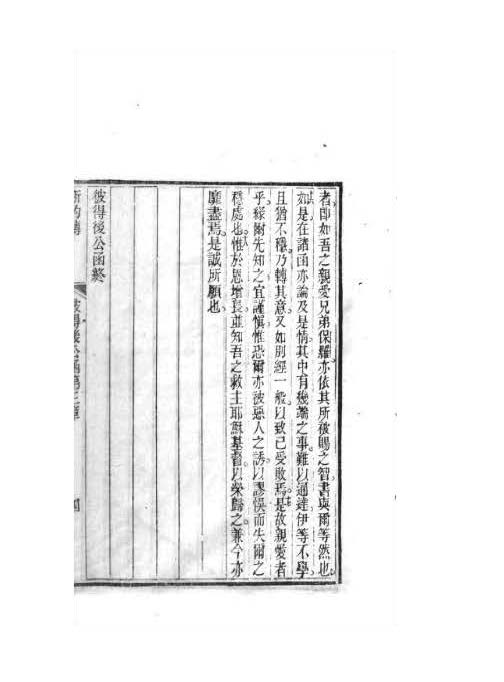 者即如吾之親愛兄弟保羅亦依其所被賜之智書與爾等然也
如是在諸函亦論及是情其中有幾端之事難以通達伊等不學
且猶不穩乃轉其意又如別經一般以致已受敗焉是故親愛者
乎緣爾先知之宜謹慎惟恐爾亦被惡人之誘以謬悞而失爾之
穩處也惟於恩增長並知吾之救主耶穌基督以榮歸之兼今亦
靡盡焉是誠所願也
彼得後公函終
彼得後公函第三章